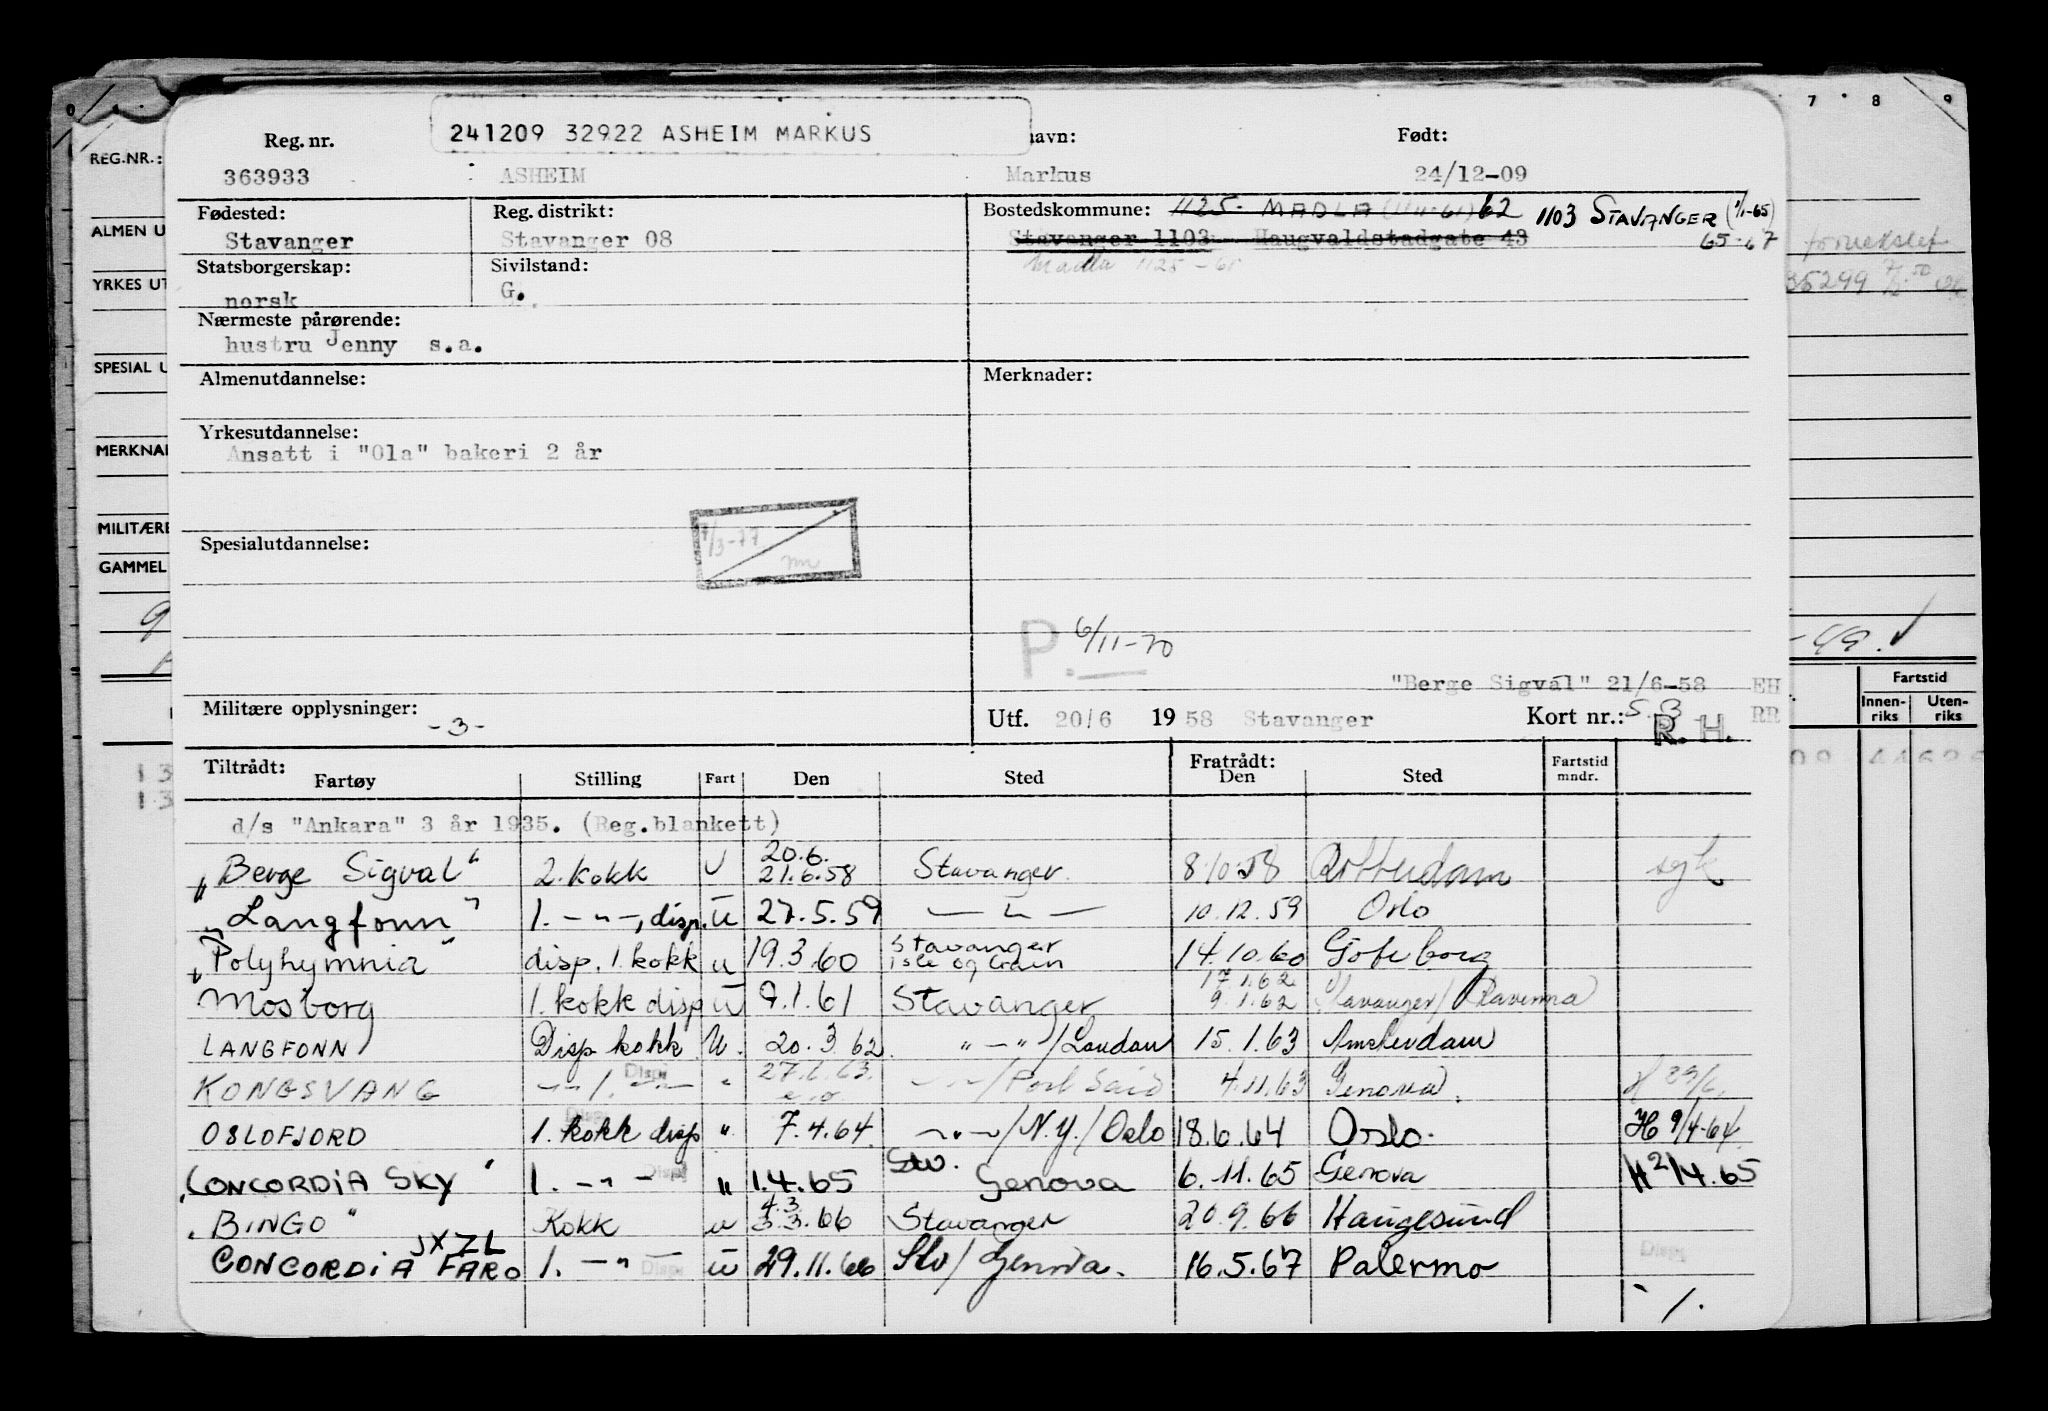 241209 32922 ASHEIM MARKUS
Reg. nr. navn: Født:
363933 ASHEIM Markus 24/12-09
Fødested: Reg. distrikt: Bostedskommune: 1125 MADLA (1/11-61) 62 1103 STAVANGER (1/1-65)
Stavanger Stavanger 08 Stavanger 1103 Haugvaldstadgate 43 65-67
Statsborgerskap: Sivilstand: Madla 1125-61
norsk G.
Nærmeste pårørende:
hustru Jenny s.a.
Almenutdannelse: Merknader:
Yrkesutdannelse:
Ansatt i "Ola" bakeri 2 år
Spesialutdannelse:
7/3-77
P. 6/11-70
"Berge Sigval" 21/6-58 EH
Militære opplysninger: -3-
Utf. 20/6 1958 Stavanger Kort nr.: 5.3 RR
R.H.
Tiltrådt: Fratrådt: Fartstid
Fartøy Stilling Fart Den Sted Den Sted mndr.
d/s "Ankara" 3 år 1935. (Reg.blankett)
"Berge Sigval" 2. kokk U 20.6. 21.6.58 Stavanger 8.10.58 Rotterdam
"Langfonn" 1. -"-, disp. U 27.5.59 -"- 10.12.59 Oslo
"Polyhymnia" disp. 1. kokk u 19.3.60 Stavanger 14.10.60 Göteborg
Mosborg 1. kokk disp U 9.1.61 Stavanger 17.1.62 9.1.62 Stavanger/Ravenna
LANGFONN Disp kokk U. 20.3.62 "-"/London 15.1.63 Amsterdam
KONGSVANG -"- 1. -"- Disp " 27.6.63. -"-/Port Said 4.11.63 Genova. H 29/6.
OSLOFJORD 1. kokk disp " 7.4.64 -"-/N.Y./Oslo 18.6.64 Oslo. H 9/4-64
"CONCORDIA SKY" 1. -"- Disp " 1.4.65 Stv. Genova 6.11.65 Genova H 2/4.65
"BINGO" Kokk u 4.3 3.3.66 Stavanger 20.9.66 Haugesund
JXZL
CONCORDIA FARO 1. -"- Disp U 29.11.66 Stv/Genova. 16.5.67 Palermo Disp
/.
REG.NR.:
ALMEN U
YRKES UT
SPESIAL U
MERKNA
MILITÆRE
GAMMEL
7 8 9
35299
-49.
Fartstid
Innen-riks Uten-riks